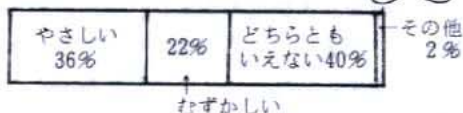 やさしい
36%
22%
どちらとも
いえない40%
その他
2%
むずかしい